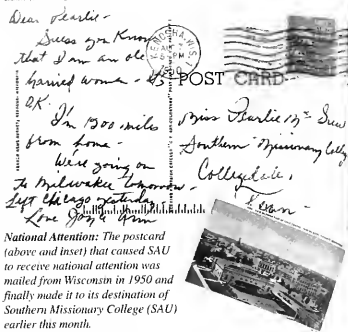 Dear Pearlie-
Guess you know
that I am an old
married woman - It's
O.K.
I'm 1200 miles
from home-
We're going on
to Milwakee tomorrow.
Left Chicago yesterday.
Love Joyce Ann
KENOSHA, WIS.
PM
POST CARD
Miss Pearlie Mc
Southern Missionary Colleg
Collegedale,
Tenn-
National Attention: The postcard
(above and inset) that caused SAU
to receive national attention was
mailed from Wisconsin in 1950 and
finally made it to its destination of
Southern Missionary College (SAU)
earlier this month.